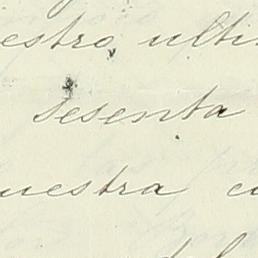 estro, ulti
sesenta
uestra cu